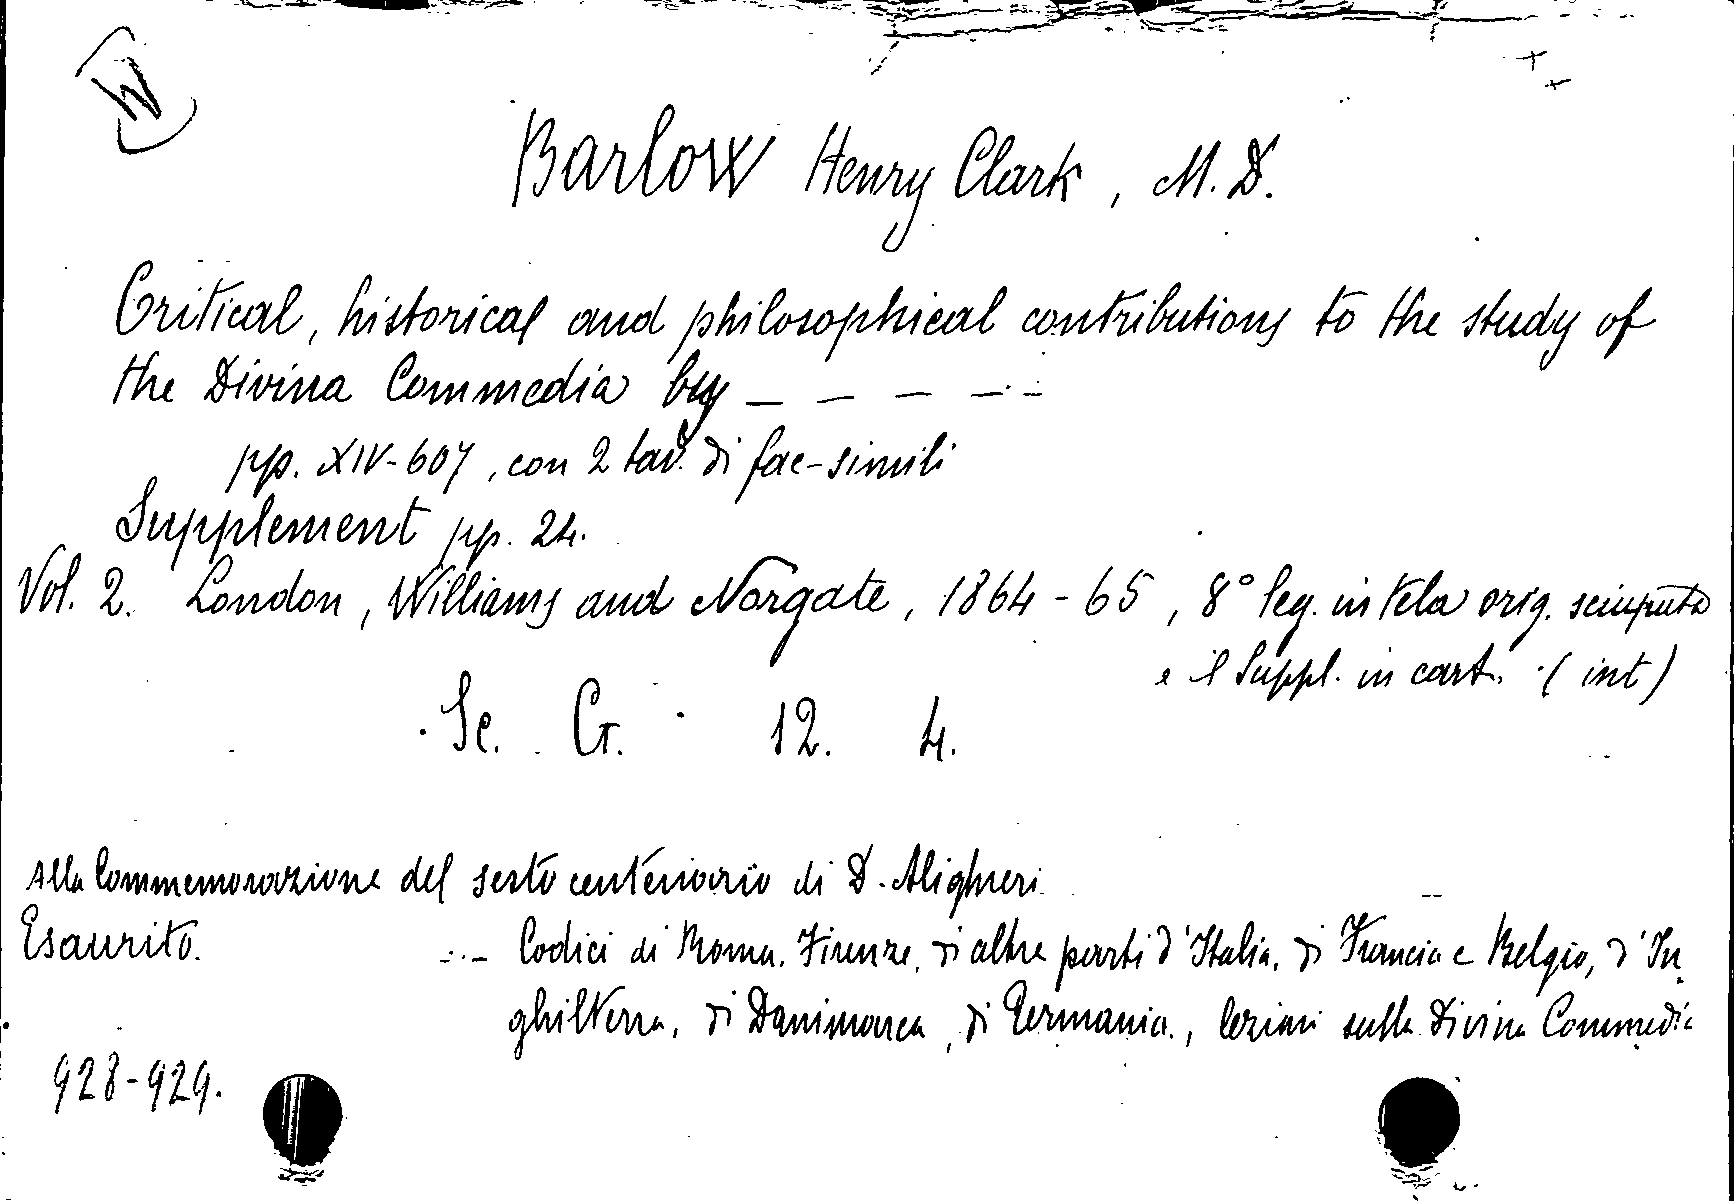 W
Barlow Henry Clark, M. D.
Critical, historical and philosophical contributions to the study of
the Divina Commedia by _ _ _ _ _
pp. XIV-607, con 2 tav. di fac-simili
Supplement pp. 24.
Vol. 2. London, Williams and Norgate, 1864-65, 8° leg. in tela orig. sciupata
e il Suppl. in cart. (int)
Sc. G. 12. 4.
Alla Commemorazione del sesto centenario di D. Alighieri
Esaurito.
Codici di Roma, Firenze, di altre parti d'Italia, di Francia e Belgio, d'In
ghilterra, di Danimarca, di Germania, lezioni sulla Divina Commedia
928-929.